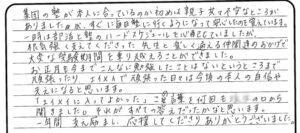 集団の塾が本人に合っているのか初めは親子共々不安なところが
ありましたが、すぐに毎日塾に行くようになって安心したのを覚えています。
一時は部活と塾のハードスケジュールで心配していましたが、
根気強く支えてくださった先生と楽しく通える仲間達のおかげで
大変な受験期間を乗り越えることができました。
お正月も今までこんなに勉強したことはないというところまで
頑張ったり、エイメイで頑張った日々は今後の本人の自信や
支えになると思います。
「エイメイに入ってよかった」この言葉を何回も の口から
聞きました。それがすべての答えだったかなと思います。
一年間支え励まし、応援してくださりありがとうございました。